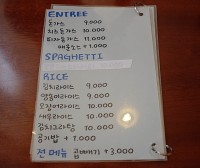 ENTREE
돈가스 9.000
치즈돈가스 10.000
피자돈가스 11.000
매운소스 +1.000
SPAGHETTI
RICE
김치라이스 9.000
해물라이스 9.000
오징어라이스 10.000
새우라이스 10.000
김치고라탕 10.000
김가밥 + 1.000
전 메뉴 곱빼기 +3.000